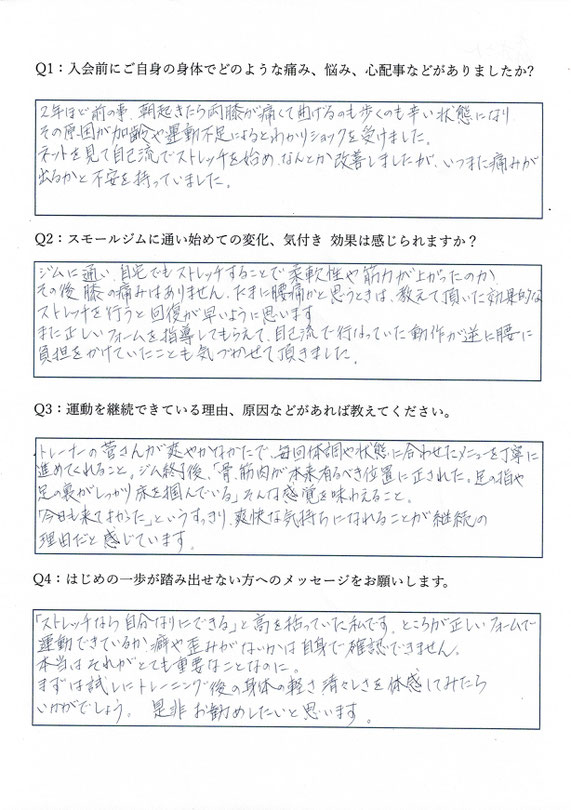 Q1：入会前にご自身の身体でどのような痛み、悩み、心配事などがありましたか?
2年ほど前の事、朝起きたら両膝が痛くて曲げるのも歩くのも辛い状態になり
その原因が加齢や運動不足によるとわかりショックを受けました。
ネットを見て自己流でストレッチを始め、なんとか改善しましたが、いつまた痛みが
出るかと不安を持っていました。
Q2：スモールジムに通い始めての変化、気付き 効果は感じられますか？
ジムに通い、自宅でもストレッチすることで柔軟性や筋力が上がったのか
その後膝の痛みはありません。たまに腰痛かと思うときは、教えて頂いた効果的な
ストレッチを行うと回復が早いように思います
また正しいフォームを指導してもらえて、自己流で行なっていた動作が逆に腰に
負担をかけていたことも気づかせて頂きました。
Q3：運動を継続できている理由、原因などがあれば教えてください。
トレーナーの菅さんが爽やかなかたで、毎回体調や状態に合わせたメニューを丁寧に
進めてくれること。ジム終了後、「骨、筋肉が本来有るべき位置に正された。足の指や
足の裏がしっかり床を掴んでいる」そんな感覚を味わえること。
「今日も来てよかった」というすっきり、爽快な気持ちになれることが継続の
理由だと感じています。
Q4：はじめの一歩が踏み出せない方へのメッセージをお願いします。
「ストレッチなら自分なりにできる」と高を括っていた私です。ところが正しいフォームで
運動できているか、癖や歪みがないかは自身で確認できません。
本当はそれがとても重要なことなのに。
まずは試しにトレーニング後の身体の軽さ清々しさを体感してみたら
いかがでしょう。 是非お勧めしたいと思います。